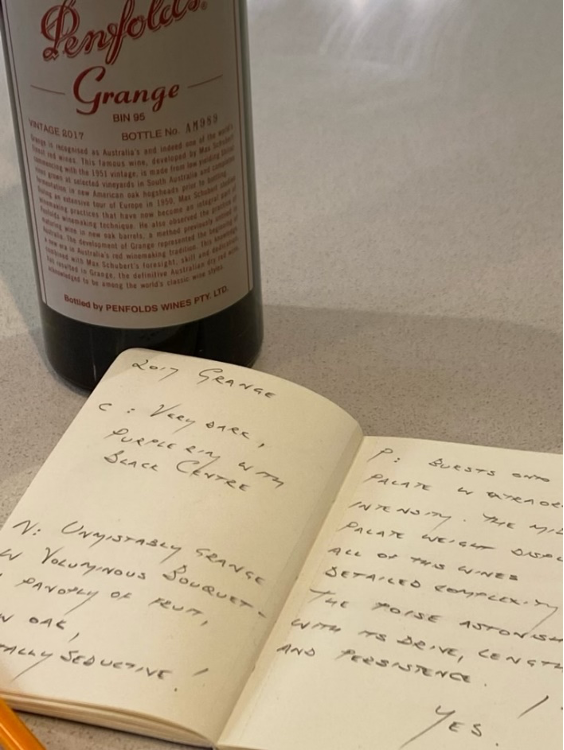 Penfolds
Grange
BIN 95
VINTAGE 2017 BOTTLE No. AM989
Grange is recognised as Australia's and indeed one of the world's
finest red wines. This famous wine, developed by Max Schubert
commencing with the 1951 vintage, is made from low yielding
vines grown at selected vineyards in South Australia and
fermentation in new American oak hogsheads prior to bottling.
During an extensive tour of Europe in 1950, Max Schubert studied
winemaking practices that have now become an integral part of
Penfolds winemaking technique. He also observed the practice of
maturing wine in new oak barrels, a method previously
Australia. The development of Grange represented the beginning of
a new era in Australia's red winemaking tradition. This
combined with Max Schubert's foresight, skill and dedication
has resulted in Grange, the definitive Australian dry red wine
acknowledged to be among the world's classic wine styles.
Bottled by PENFOLDS WINES PTY. LTD.
2017 GRANGE
C : VERY DARK,
PURPLE RIM WITH
BLACK CENTRE
N: UNMISTABLY GRANGE
W VOLUMINOUS BOUQUET -
PANOPLY OF FRUIT,
OAK,
SEDUCTIVE. !
P: BURSTS ONTO
PALATE W
INTENSITY. THE
PALATE WEIGHT
ALL OF THIS WINES
DETAILED COMPLEXITY
THE POISE
WITH ITS DRIVE, LENGTH
AND PERSISTENCE.
YES. !